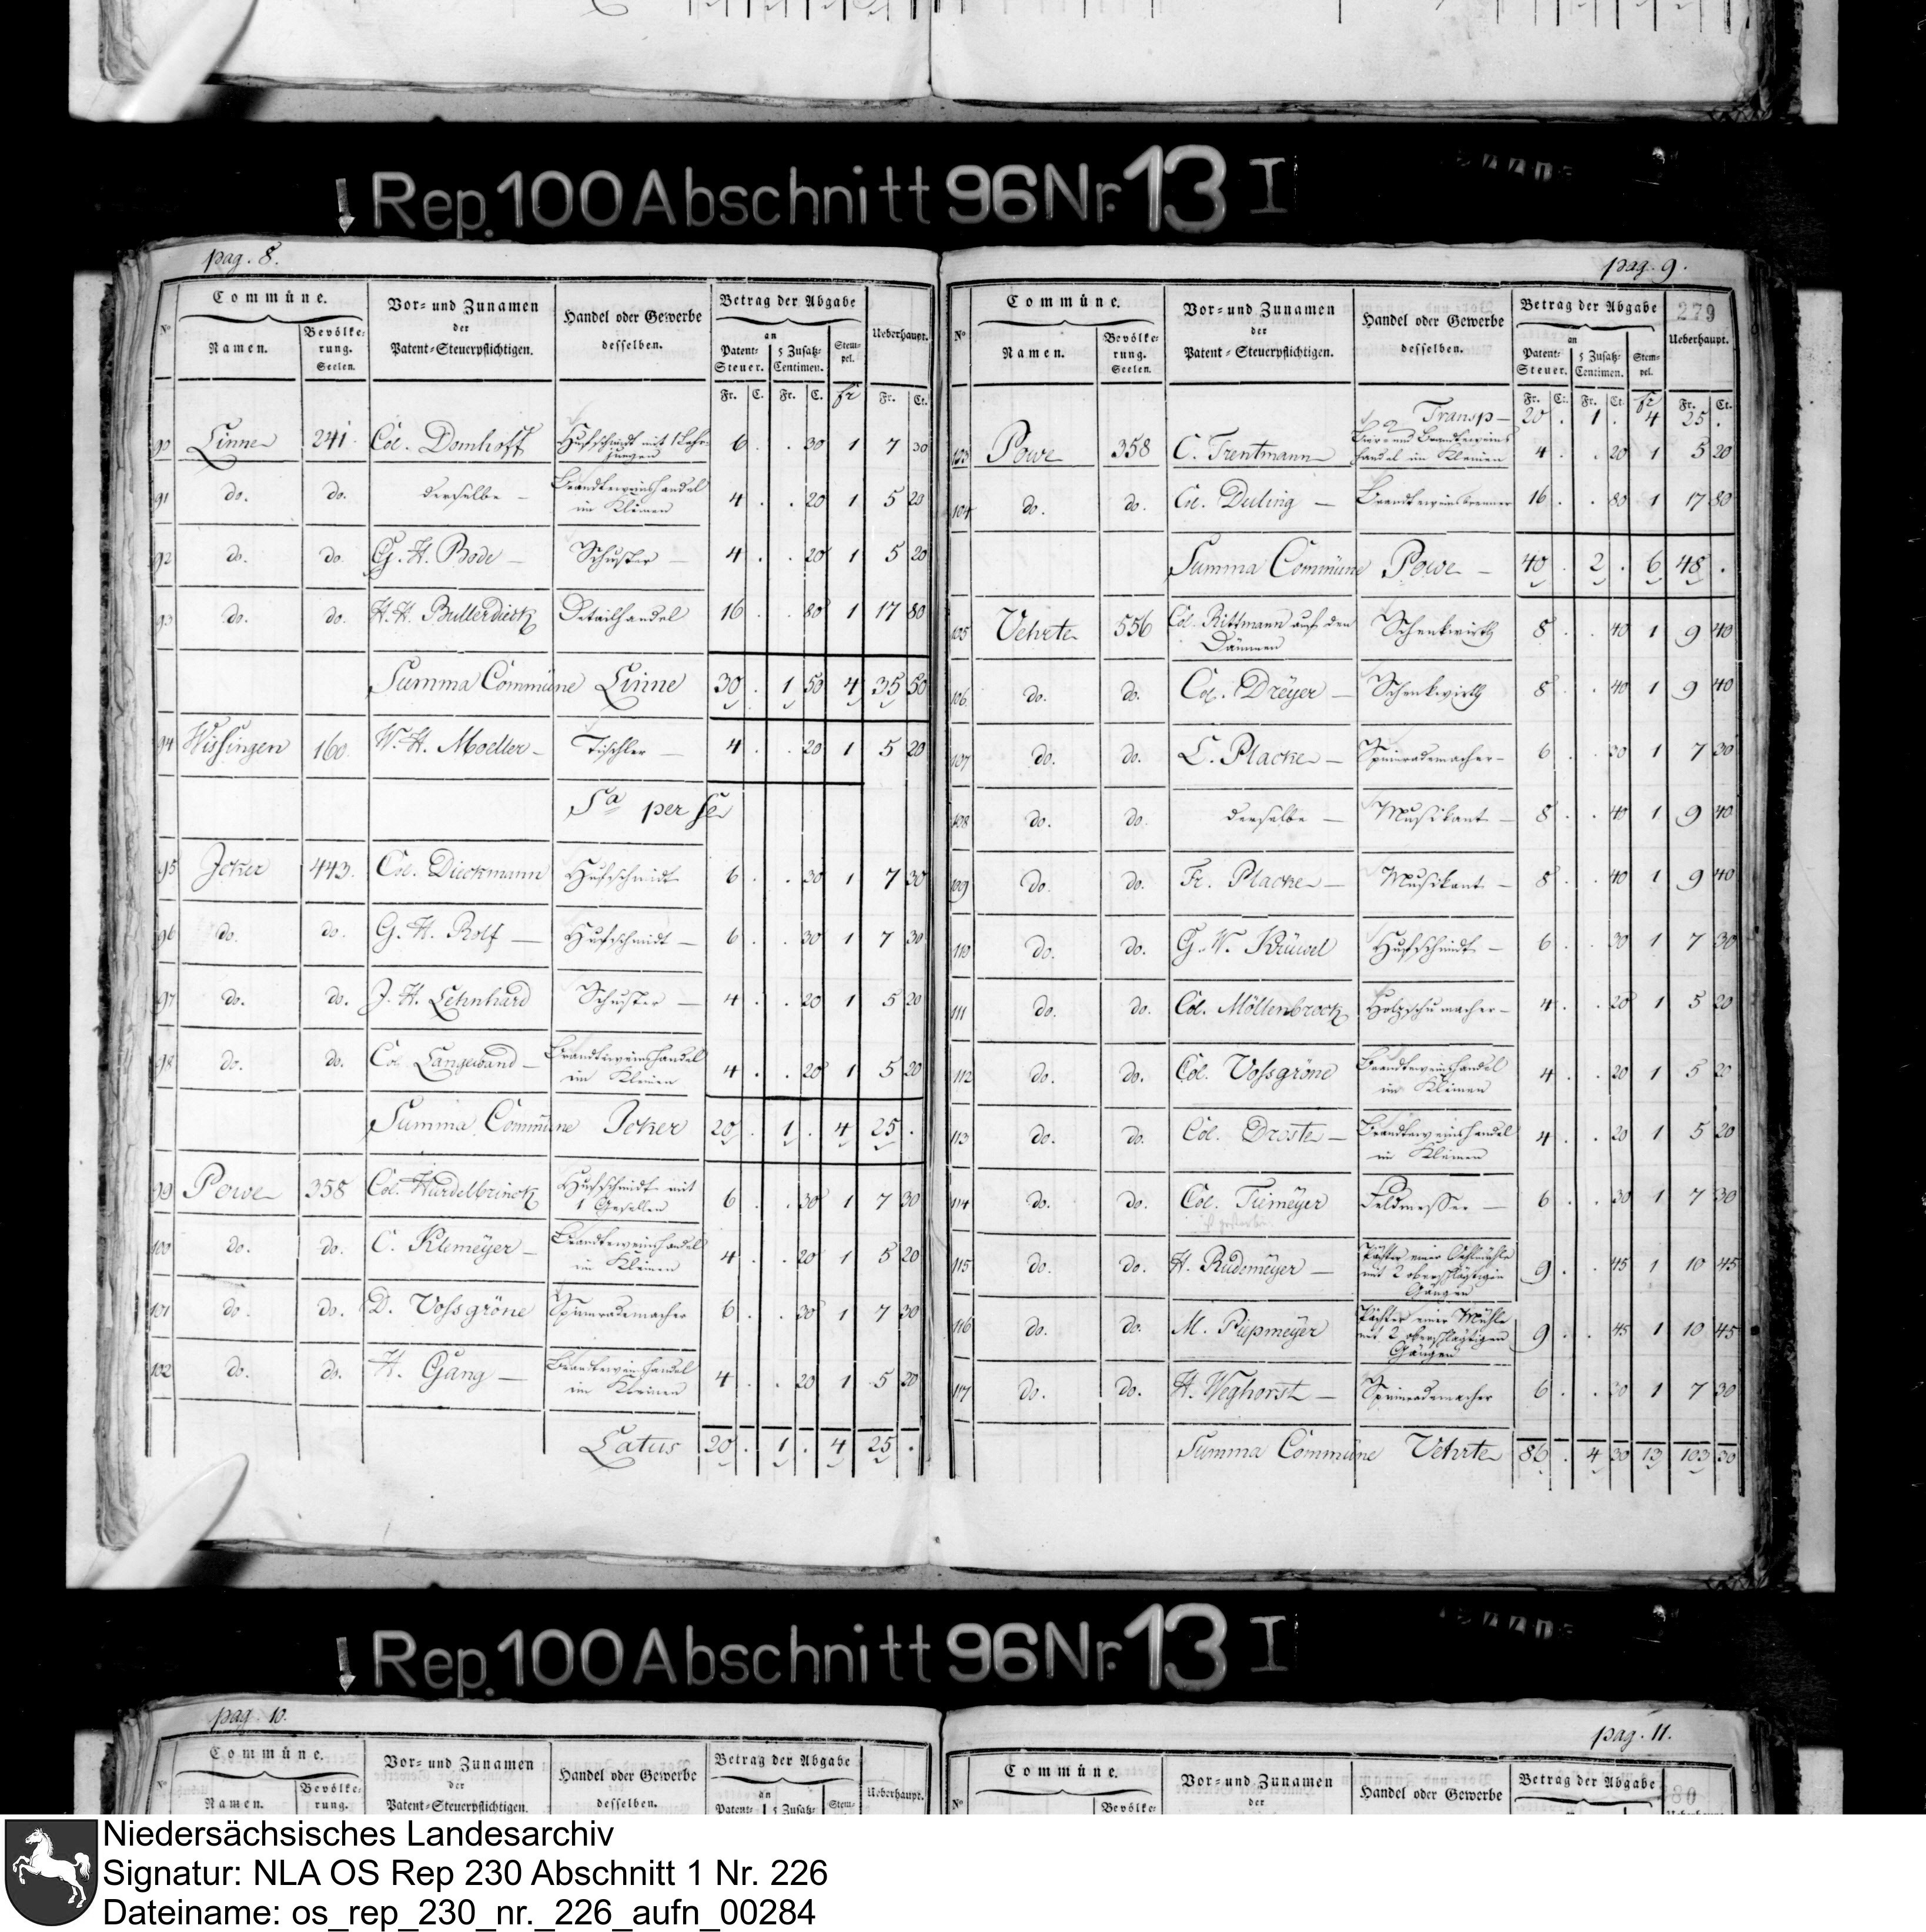 Rep. 100 Abschnitt 96 Nr. 13 I
pag. 8.
Commüne.
Vor- und Zunamen
der
Patent-Steuerpflichtigen.
Handel oder Gewerbe
desselben.
Betrag der Abgabe
an
Ueberhaupt.
No
Namen.
Bevölke-
rung.
Seelen.
Patent-
Steuer.
5 Zusatz-
Centimen.
Stem-
pel.
Fr. C. Fr. C. fr Fr. Ct.
90 Linne 241. Col. Domhoff Hufschmidt mit 1 Lehr- 6 . . 30 1 7 30
jungen
91 do. do. derselbe – Brandteweinshandel 4 . . 20 1 5 20
im Kleinen
92 do. do. G. H. Bode – Schuster – 4 . . 20 1 5 20
93 do. do. H. H. Bullerdieck Detailhandel 16 . . 80 1 17 80
Summa Commüne Linne 30 . 1 50 4 35 50
94 Wissingen 160. W. H. Moeller – Tischler – 4 . . 20 1 5 20
Sa per se
95 Jcker 443. Col. Dieckmann Hufschmidt 6 . . 30 1 7 30
96 do. do. G. H. Rolf – Hufschmidt – 6 . . 30 1 7 30
97 do. do. J. H. Lehnhard Schuster – 4 . . 20 1 5 20
98 do. do. Col. Langewand – Brandteweinshandel 4 . . 20 1 5 20
im Kleinen
Summa Commüne Jcker 20 . 1 . 4 25 .
99 Powe 358 Col. Hurdelbrinck Hufschmidt mit 6 . . 30 1 7 30
1 Gesellen
100 do. do. C. Klemeÿer – Brandteweinshandel 4 . . 20 1 5 20
im Kleinen
101 do. do. D. Vossgröne Spinrademacher 6 . . 30 1 7 30
102 do. do. H. Gang – Brandteweinshandel 4 . . 20 1 5 20
im Kleinen
Latus 20 . 1 . 4 25 .
pag. 9.
279
Commüne.
Vor- und Zunamen
der
Patent-Steuerpflichtigen.
Handel oder Gewerbe
desselben.
Betrag der Abgabe
an
Ueberhaupt.
No
Namen.
Bevölke-
rung.
Seelen.
Patent-
Steuer.
5 Zusatz-
Centimen.
Stem-
pel.
Fr. Ct. Fr. Ct. fr Fr. Ct.
Transp – 20 . 1 . 4 25 .
103 Powe 358 C. Trentmann Bier und Brandteweins 4 . . 20 1 5 20
handel im Kleinen
104 do. do. Col. Duling – Brandteweinsbrenner 16 . . 80 1 17 80
Summa Commüne Powe – 40 . 2 . 6 48 .
105 Vehrte 556 Col. Rittmann auf den Schenkwirth 8 . . 40 1 9 40
Dämmen
106 do. do. Col. Dreÿer – Schenkwirth 8 . . 40 1 9 40
107 do. do. L. Placke – Spinrademacher – 6 . . 30 1 7 30
108 do. do. derselbe – Musikant – 8 . . 40 1 9 40
109 do. do. Fr. Placke – Musikant – 8 . . 40 1 9 40
110 do. do. G. W. Krüwel Hufschmidt – 6 . . 30 1 7 30
111 do. do. Col. Möllenbrock Holzschumacher – 4 . . 20 1 5 20
112 do. do. Col. Vossgröne Brandteweinshandel 4 . . 20 1 5 20
im Kleinen
113 do. do. Col. Droste – Brandteweinshandel 4 . . 20 1 5 20
im Kleinen
114 do. do. Col. Tiemeÿer Feldmesser – 6 . . 30 1 7 30
115 do. do. H. Rudemeÿer – Pächter einer Oehlmühle 9 . . 45 1 10 45
mit 2 oberschlägtigen
Gängen
116 do. do. M. Piepmeÿer Pächter einer Mühle 9 . . 45 1 10 45
mit 2 oberschlägtigen
Gängen
117 do. do. H. Weghorst – Spinrademacher 6 . . 30 1 7 30
Summa Commüne Vehrte 86 . 4 30 13 103 30
Rep. 100 Abschnitt 96 Nr. 13 I
pag. 10.
Commüne.
Vor- und Zunamen
der
Patent-Steuerpflichtigen.
Handel oder Gewerbe
desselben.
Betrag der Abgabe
an
Ueberhaupt.
No
Namen.
Bevölke-
rung.
Patent-
5 Zusatz-
Stem-
pag. 11.
Commüne.
Vor- und Zunamen
der
Handel oder Gewerbe
Betrag der Abgabe
80
No
Bevölke-
Niedersächsisches Landesarchiv
Signatur: NLA OS Rep 230 Abschnitt 1 Nr. 226
Dateiname: os_rep_230_nr._226_aufn_00284